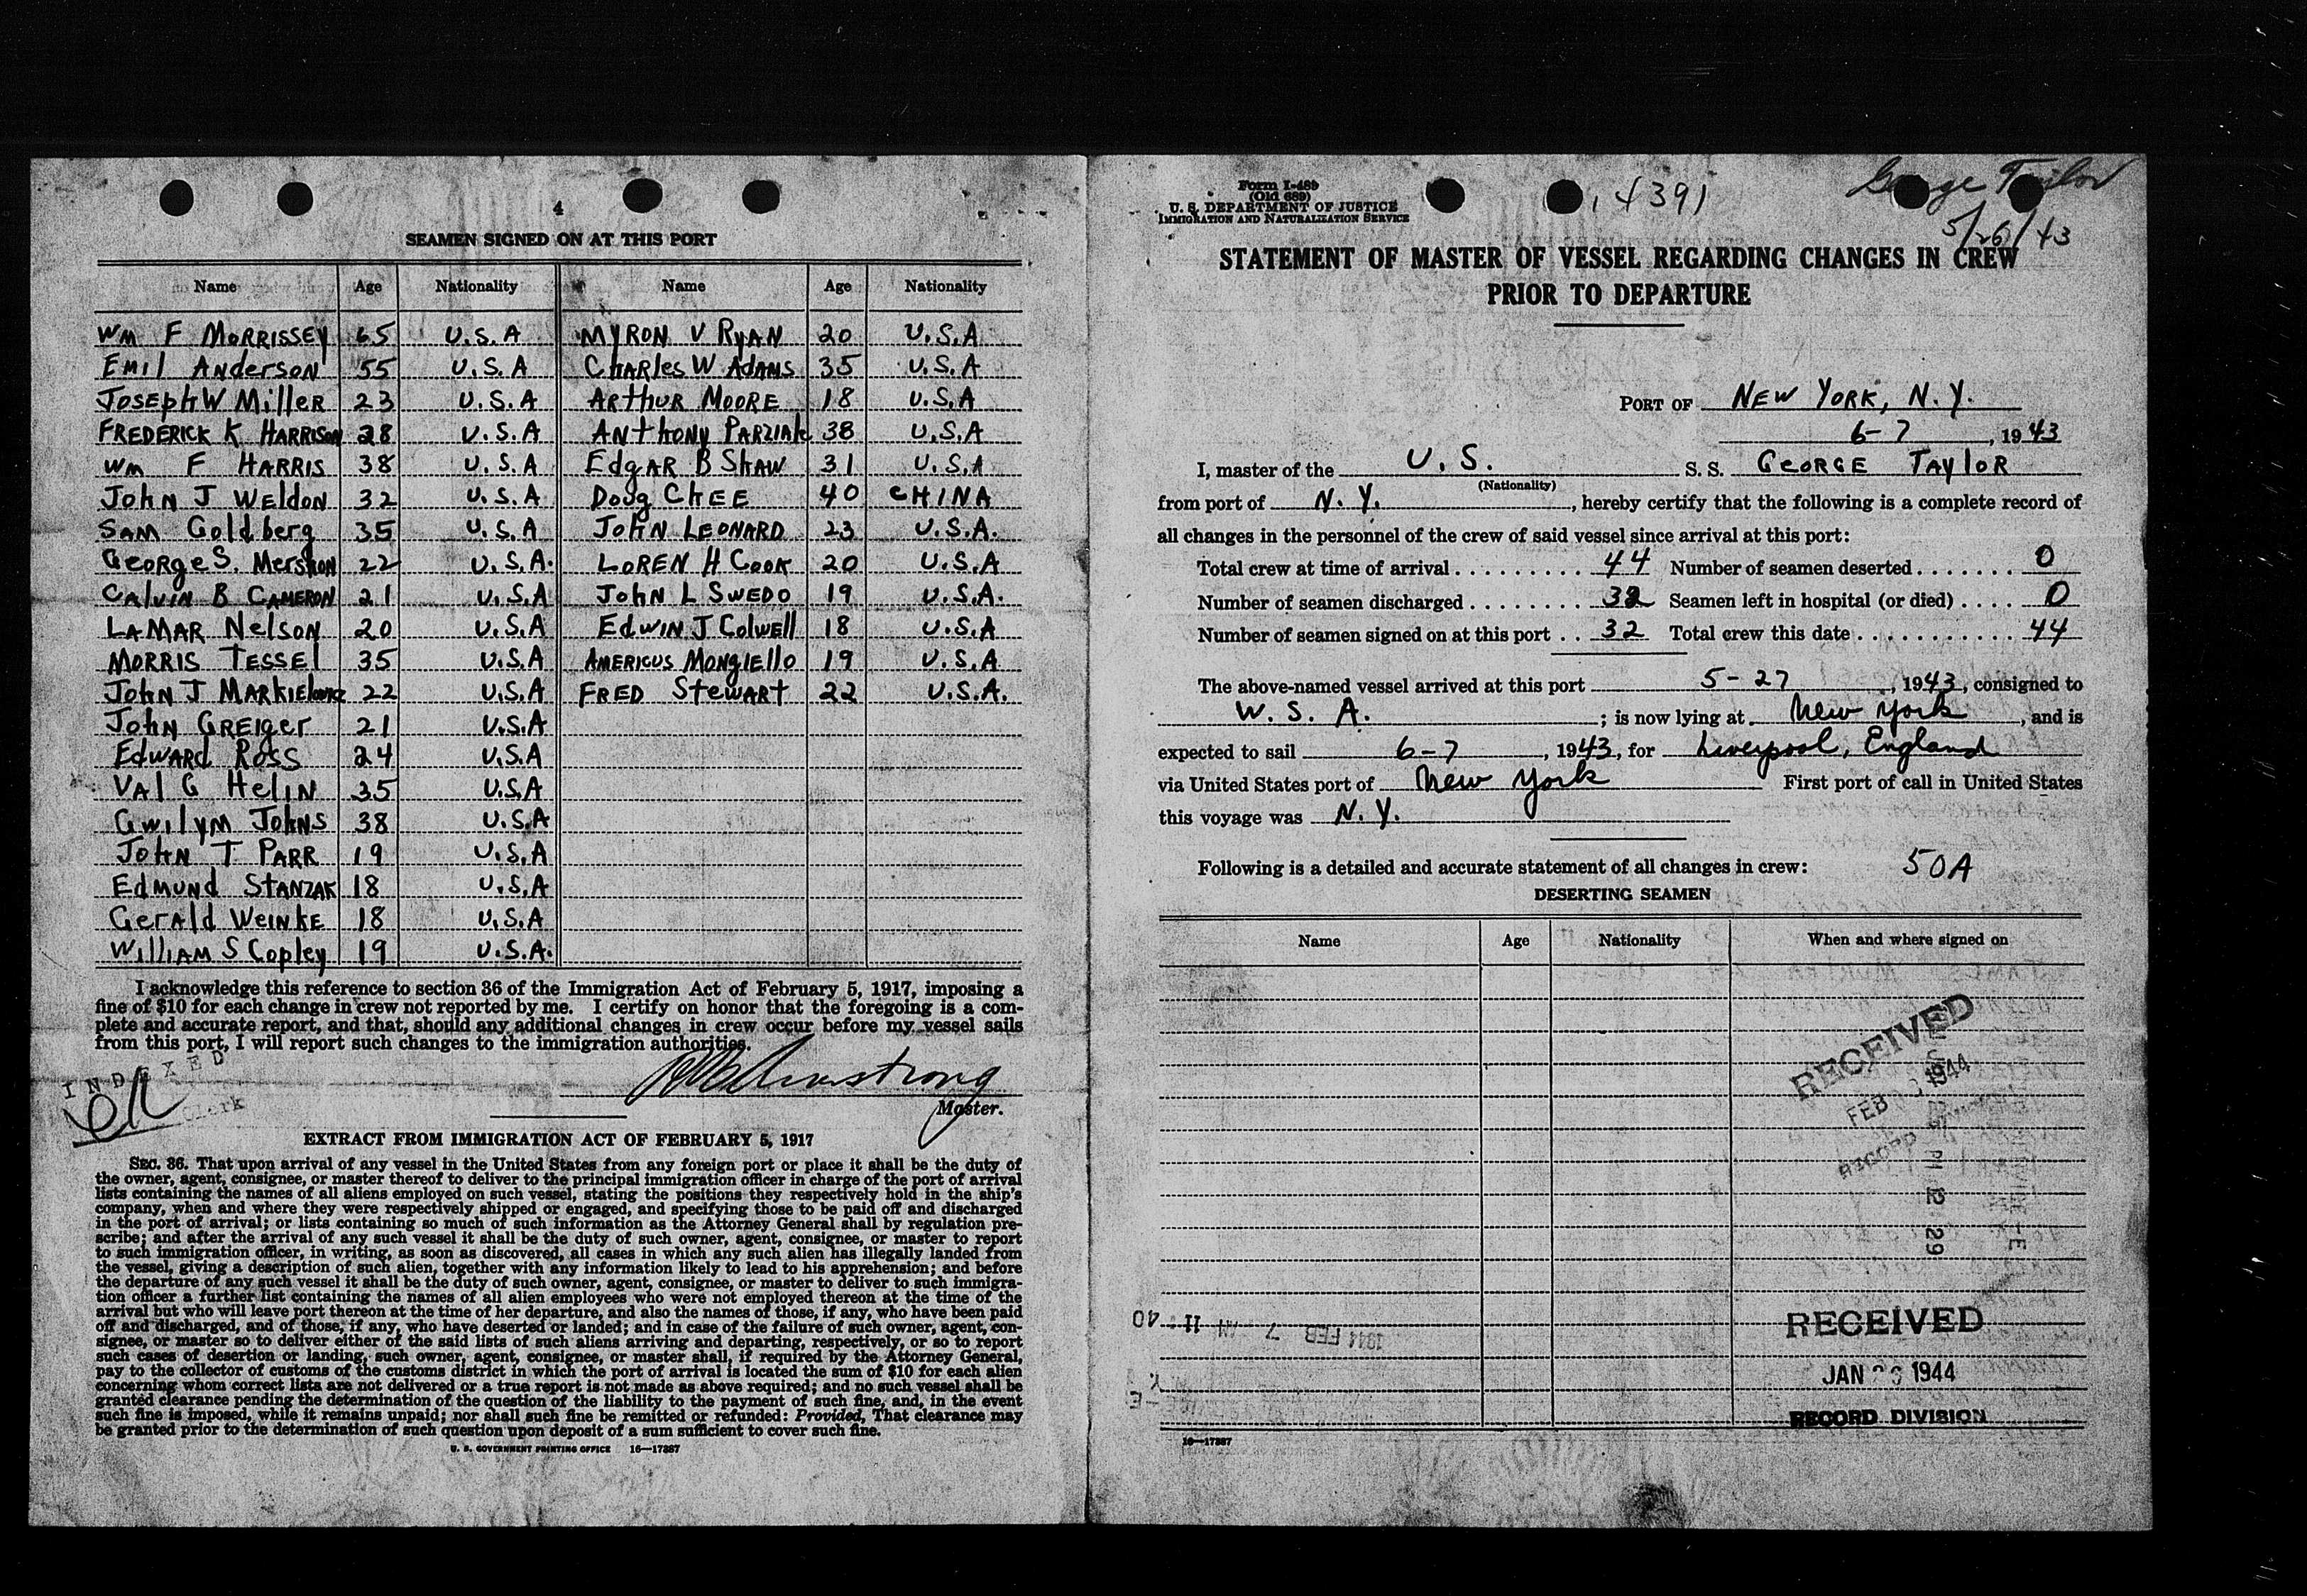 4
SEAMEN SIGNED ON AT THIS PORT
Name Age Nationality Name Age Nationality
Wm F MORRISSEY 65 U.S.A MYRON V RYAN 20 U.S.A
Emil Anderson 55 U.S.A CHARles W ADAMS 35 U.S.A
Joseph W Miller 23 U.S.A ARthuR MOORE 18 U.S.A
FREDERICK K HARRISON 28 U.S.A ANthony PARZIAK 38 U.S.A
Wm F HARRIS 38 U.S.A EdgAR B SHAW 31 U.S.A
John J Weldon 32 U.S.A Doug CHEE 40 CHINA
SAM Goldberg 35 U.S.A John LEONARD 23 U.S.A.
GeoRge S. Mershon 22 U.S.A. LOREN H COOK 20 U.S.A
CAlvin B CAMERON 21 U.S.A John L SWEDO 19 U.S.A.
LAMAR Nelson 20 U.S.A EdWIN J Colwell 18 U.S.A
MORRIS TESSEl 35 U.S.A AMERICUS MONgIEllo 19 U.S.A
John J MARKIEwicz 22 U.S.A FRED StewART 22 U.S.A.
John GREIger 21 U.S.A
EdwARd Ross 24 U.S.A
VAl G HelIN 35 U.S.A
Gwilym JohNs 38 U.S.A
John T PARR 19 U.S.A
EdMUNd StANZAK 18 U.S.A
GerAld WeinkE 18 U.S.A
WillIAM S Copley 19 U.S.A.
I acknowledge this reference to section 36 of the Immigration Act of February 5, 1917, imposing a
fine of $10 for each change in crew not reported by me. I certify on honor that the foregoing is a com-
plete and accurate report, and that, should any additional changes in crew occur before my vessel sails
from this port, I will report such changes to the immigration authorities.
INDEXED
Clerk
Armstrong
Master.
EXTRACT FROM IMMIGRATION ACT OF FEBRUARY 5, 1917
SEC. 36. That upon arrival of any vessel in the United States from any foreign port or place it shall be the duty of
the owner, agent, consignee, or master thereof to deliver to the principal immigration officer in charge of the port of arrival
lists containing the names of all aliens employed on such vessel, stating the positions they respectively hold in the ship's
company, when and where they were respectively shipped or engaged, and specifying those to be paid off and discharged
in the port of arrival; or lists containing so much of such information as the Attorney General shall by regulation pre-
scribe; and after the arrival of any such vessel it shall be the duty of such owner, agent, consignee, or master to report
to such immigration officer, in writing, as soon as discovered, all cases in which any such alien has illegally landed from
the vessel, giving a description of such alien, together with any information likely to lead to his apprehension; and before
the departure of any such vessel it shall be the duty of such owner, agent, consignee, or master to deliver to such immigra-
tion officer a further list containing the names of all alien employees who were not employed thereon at the time of the
arrival but who will leave port thereon at the time of her departure, and also the names of those, if any, who have been paid
off and discharged, and of those, if any, who have deserted or landed; and in case of the failure of such owner, agent, con-
signee, or master so to deliver either of the said lists of such aliens arriving and departing, respectively, or so to report
such cases of desertion or landing, such owner, agent, consignee, or master shall, if required by the Attorney General,
pay to the collector of customs of the customs district in which the port of arrival is located the sum of $10 for each alien
concerning whom correct lists are not delivered or a true report is not made as above required; and no such vessel shall be
granted clearance pending the determination of the question of the liability to the payment of such fine, and, in the event
such fine is imposed, while it remains unpaid; nor shall such fine be remitted or refunded: Provided, That clearance may
be granted prior to the determination of such question upon deposit of a sum sufficient to cover such fine.
U. S. GOVERNMENT PRINTING OFFICE 16—17387
Form I-489
(Old 689)
U. S. DEPARTMENT OF JUSTICE
IMMIGRATION AND NATURALIZATION SERVICE
14391
George Taylor
5/26/43
STATEMENT OF MASTER OF VESSEL REGARDING CHANGES IN CREW
PRIOR TO DEPARTURE
PORT OF NEW YORK, N.Y.
6-7, 1943
I, master of the U.S. S. S. GEORGE TAYloR
(Nationality)
from port of N.Y., hereby certify that the following is a complete record of
all changes in the personnel of the crew of said vessel since arrival at this port:
Total crew at time of arrival 44 Number of seamen deserted 0
Number of seamen discharged 32 Seamen left in hospital (or died) 0
Number of seamen signed on at this port 32 Total crew this date 44
The above-named vessel arrived at this port 5-27, 1943, consigned to
W.S.A.; is now lying at New York, and is
expected to sail 6-7, 1943, for Liverpool, England
via United States port of New York First port of call in United States
this voyage was N.Y.
Following is a detailed and accurate statement of all changes in crew: 50A
DESERTING SEAMEN
Name Age Nationality When and where signed on
RECEIVED
FEB 1944
RECORD
PM 12 29
1944 FEB 7 AM 11:40
RECEIVED
JAN 1944
RECORD DIVISION
16—17387